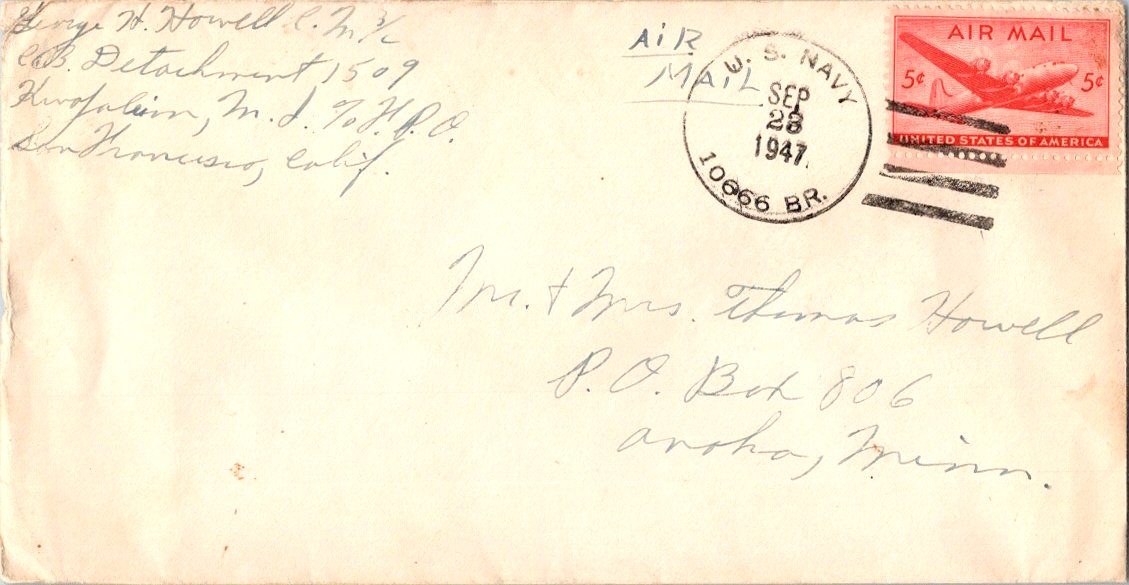 George H. Howell C. M. 3/c
C.B. Detachment 1509
Kwajalein, M. I. % F.P.O.
San Francisco, Calif.
AiR
MAIL
U. S. NAVY
SEP
28
1947
10666 BR.
AIR MAIL
5¢ 5¢
UNITED STATES OF AMERICA
Mr. & Mrs. Thomas Howell
P. O. Box 806
Anoka, Minn.